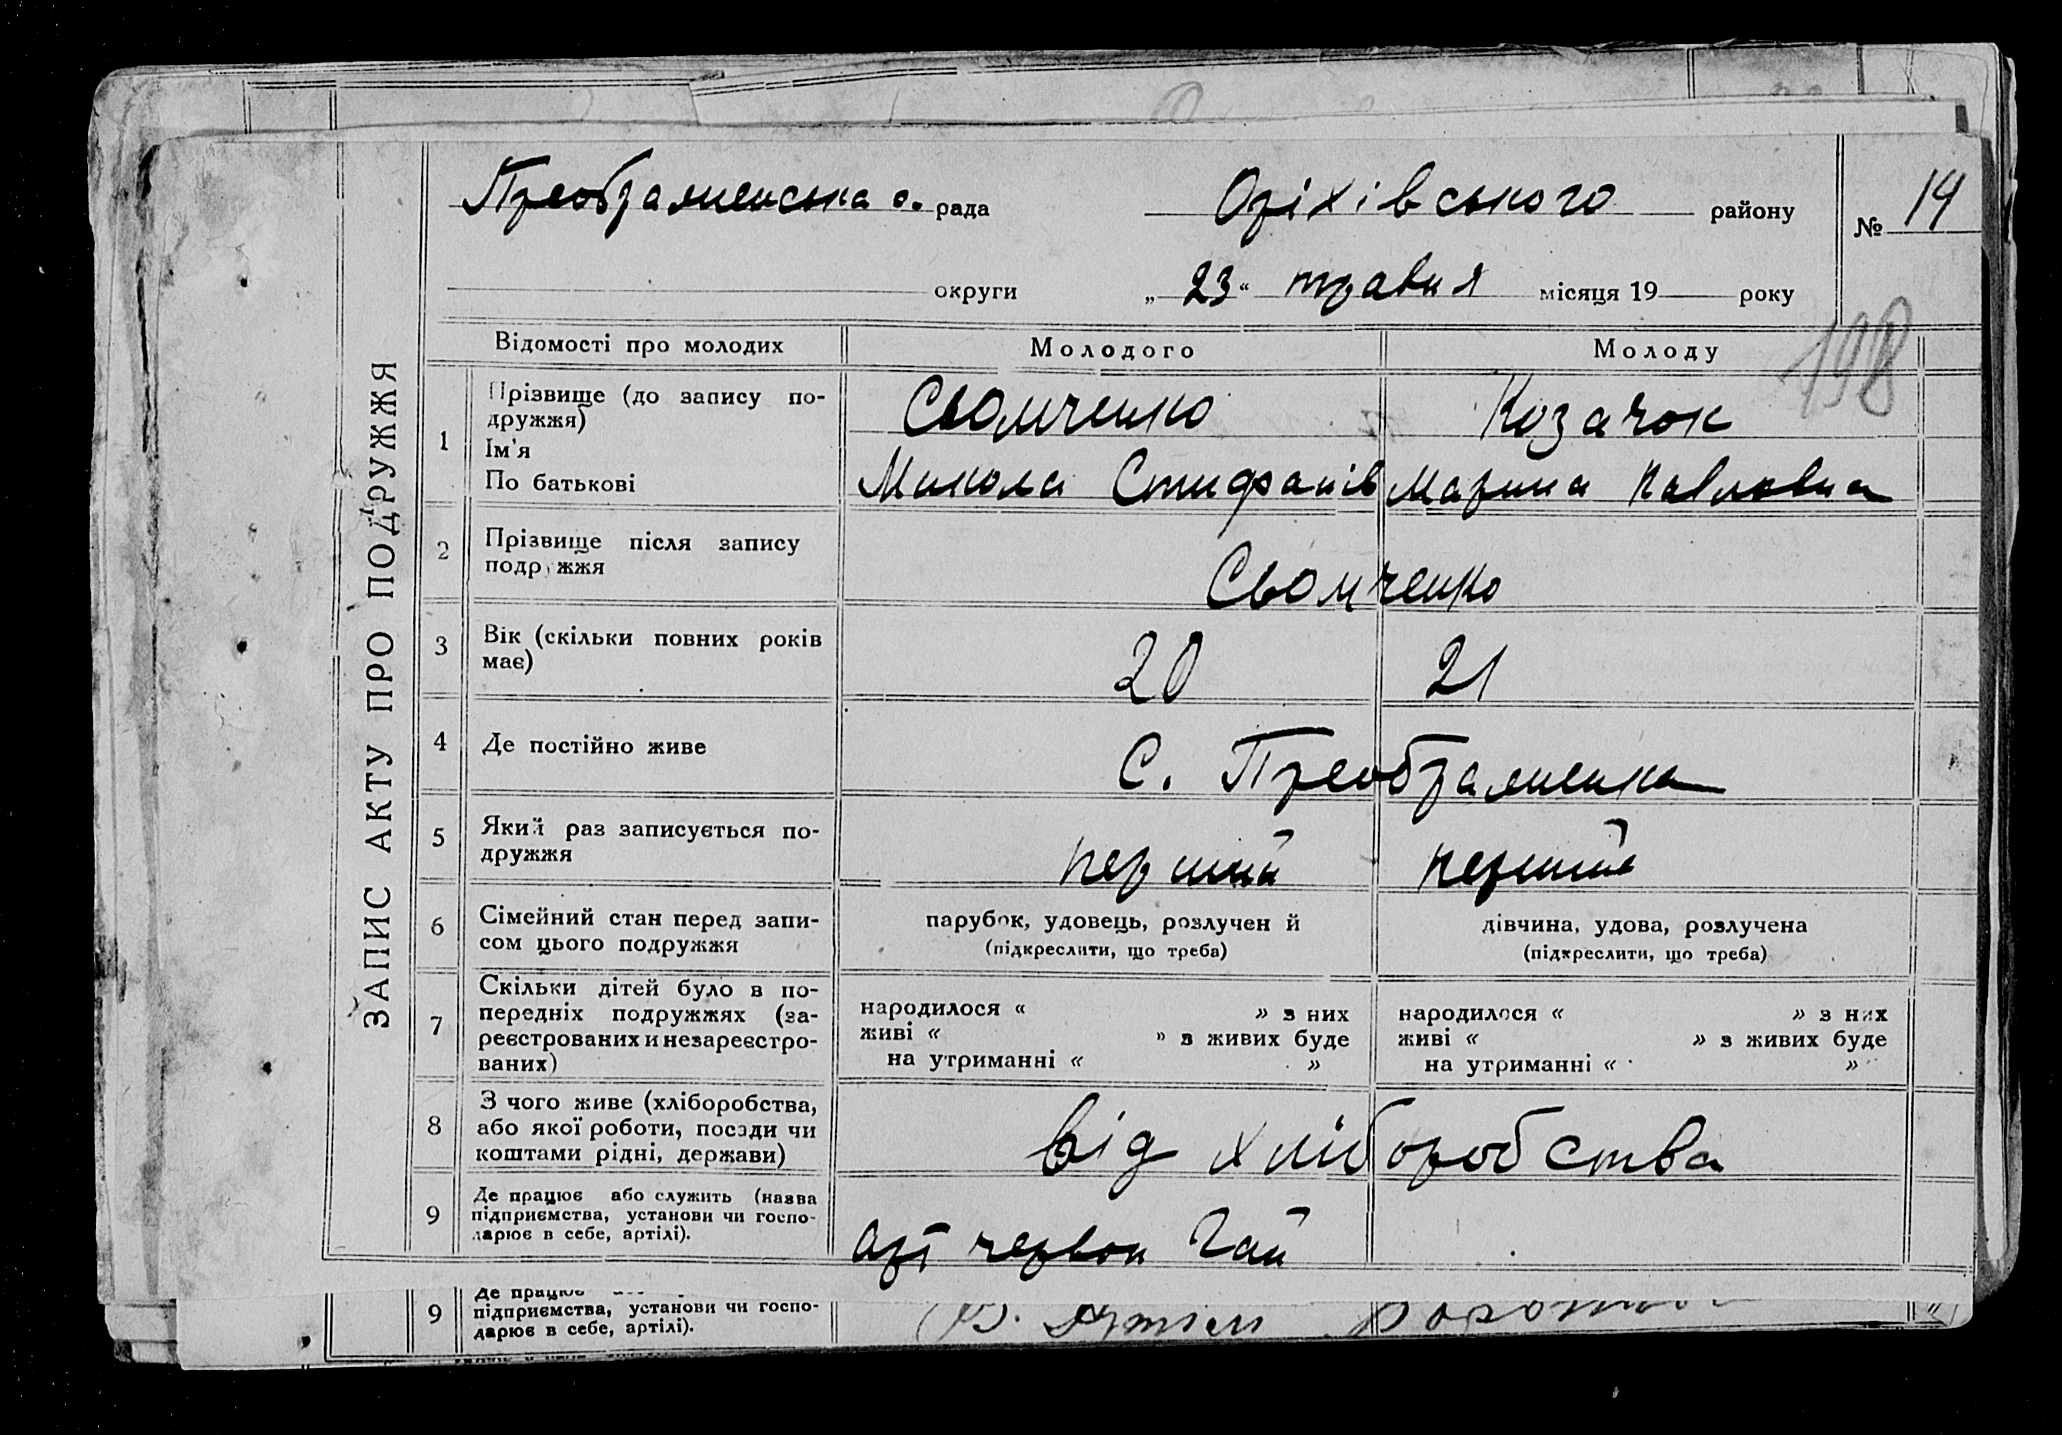 ЗАПИС АКТУ ПРО ПОДРУЖЖЯ
Преображенська с. рада Оріхівського району № 14
округи „23“ травня місяця 19 року
198
Відомості про молодих Молодого Молоду
1 Прізвище (до запису по-
дружжя)
Ім'я
По батькові
Сьомченко Козачок
Микола Стифанів Марина Павловна
2 Прізвище після запису
подружжя
Сьомченко
3 Вік (скільки повних років
має)
20 21
4 Де постійно живе С. Преображенка
5 Який раз записується по-
дружжя
перший перший
6 Сімейний стан перед запи-
сом цього подружжя
парубок, удовець, розлучен й
(підкреслити, що треба)
дівчина, удова, розлучена
(підкреслити, що треба)
7 Скільки дітей було в по-
передніх подружжях (за-
реєстрованих и незареєстро-
ваних)
народилося « » з них
живі « » з живих буде
на утриманні « »
народилося « » з них
живі « » з живих буде
на утриманні « »
8 З чого живе (хліборобства,
або якої роботи, посади чи
коштами рідні, держави)
від хліборобства
9 Де працює або служить (назва
підприємства, установи чи госпо-
дарює в себе, артілі).
арт червон Гай
9 Де працює
підприємства, установи чи госпо-
дарює в себе, артілі).